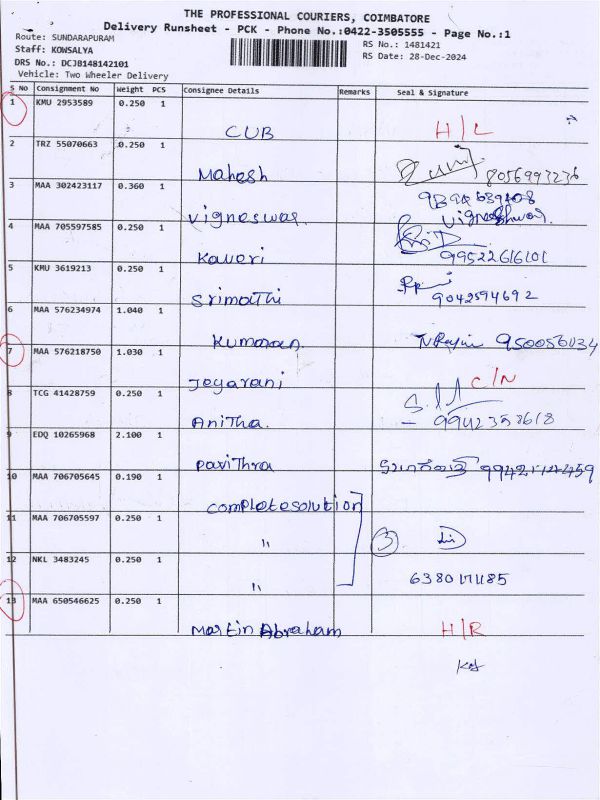 THE PROFESSIONAL COURIERS, COIMBATORE
Delivery Runsheet - PCK - Phone No.:0422-3505555 - Page No.:1
Route: SUNDARAPURAM
RS No.: 1481421
Staff: KOWSALYA
RS Date: 28-Dec-2024
DRS No.: DCJB148142101
Vehicle: Two Wheeler Delivery
S No Consignment No Weight PCS Consignee Details Remarks Seal & Signature
1 KMU 2953589 0.250 1
CUB H/L
2 TRZ 55070663 0.250 1
Mahesh 8056993236
3 MAA 302423117 0.360 1
Vigneswar Vigneshwar.
4 MAA 705597585 0.250 1
Kaveri 99522616101
5 KMU 3619213 0.250 1
Srimathi 9042594692
6 MAA 576234974 1.040 1
Kumaran 950056034
7 MAA 576218750 1.030 1
Jeyarani C/N
8 TCG 41428759 0.250 1
Anitha. 9942358618
9 EDQ 10265968 2.100 1
Pavithra
10 MAA 706705645 0.190 1
Complete solution
11 MAA 706705597 0.250 1
" 3
12 NKL 3483245 0.250 1
"
13 MAA 650546625 0.250 1
Martin Abraham H/R